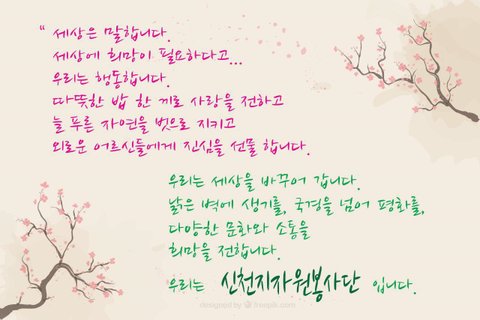 “ 세상은 말합니다.
세상에 희망이 필요하다고...
우리는 행동합니다.
따뜻한 밥 한 끼로 사랑을 전하고
늘 푸른 자연을 벗으로 지키고
외로운 어르신들에게 진심을 선물 합니다.
우리는 세상을 바꾸어 갑니다.
낡은 벽에 생기를, 국경을 넘어 평화를,
다양한 문화와 소통을
희망을 전합니다.
우리는 신천지자원봉사단 입니다.
designed by freepik.com